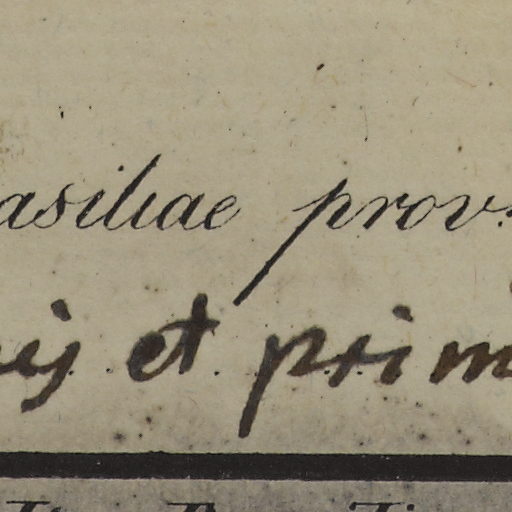 asiliae prov.
ij et prim